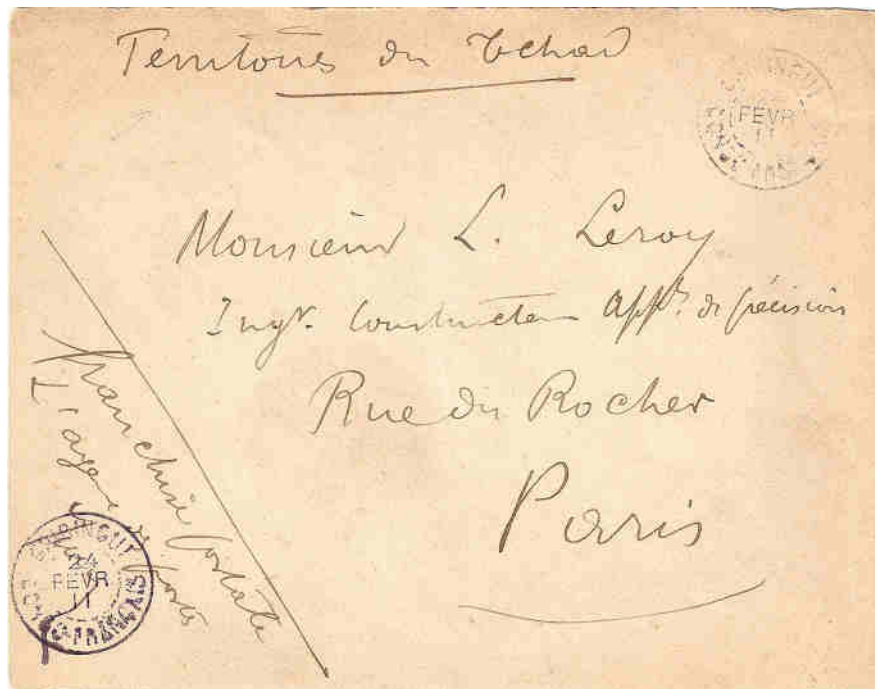 Territoires du Tchad
FEVR
11
Monsieur L. Leroy
Ingr. Constructeur app.ls de précision
Rue du Rocher
Paris
franchise postale
L'agent des postes
24
FEVR
11
CONGO-FRANÇAIS